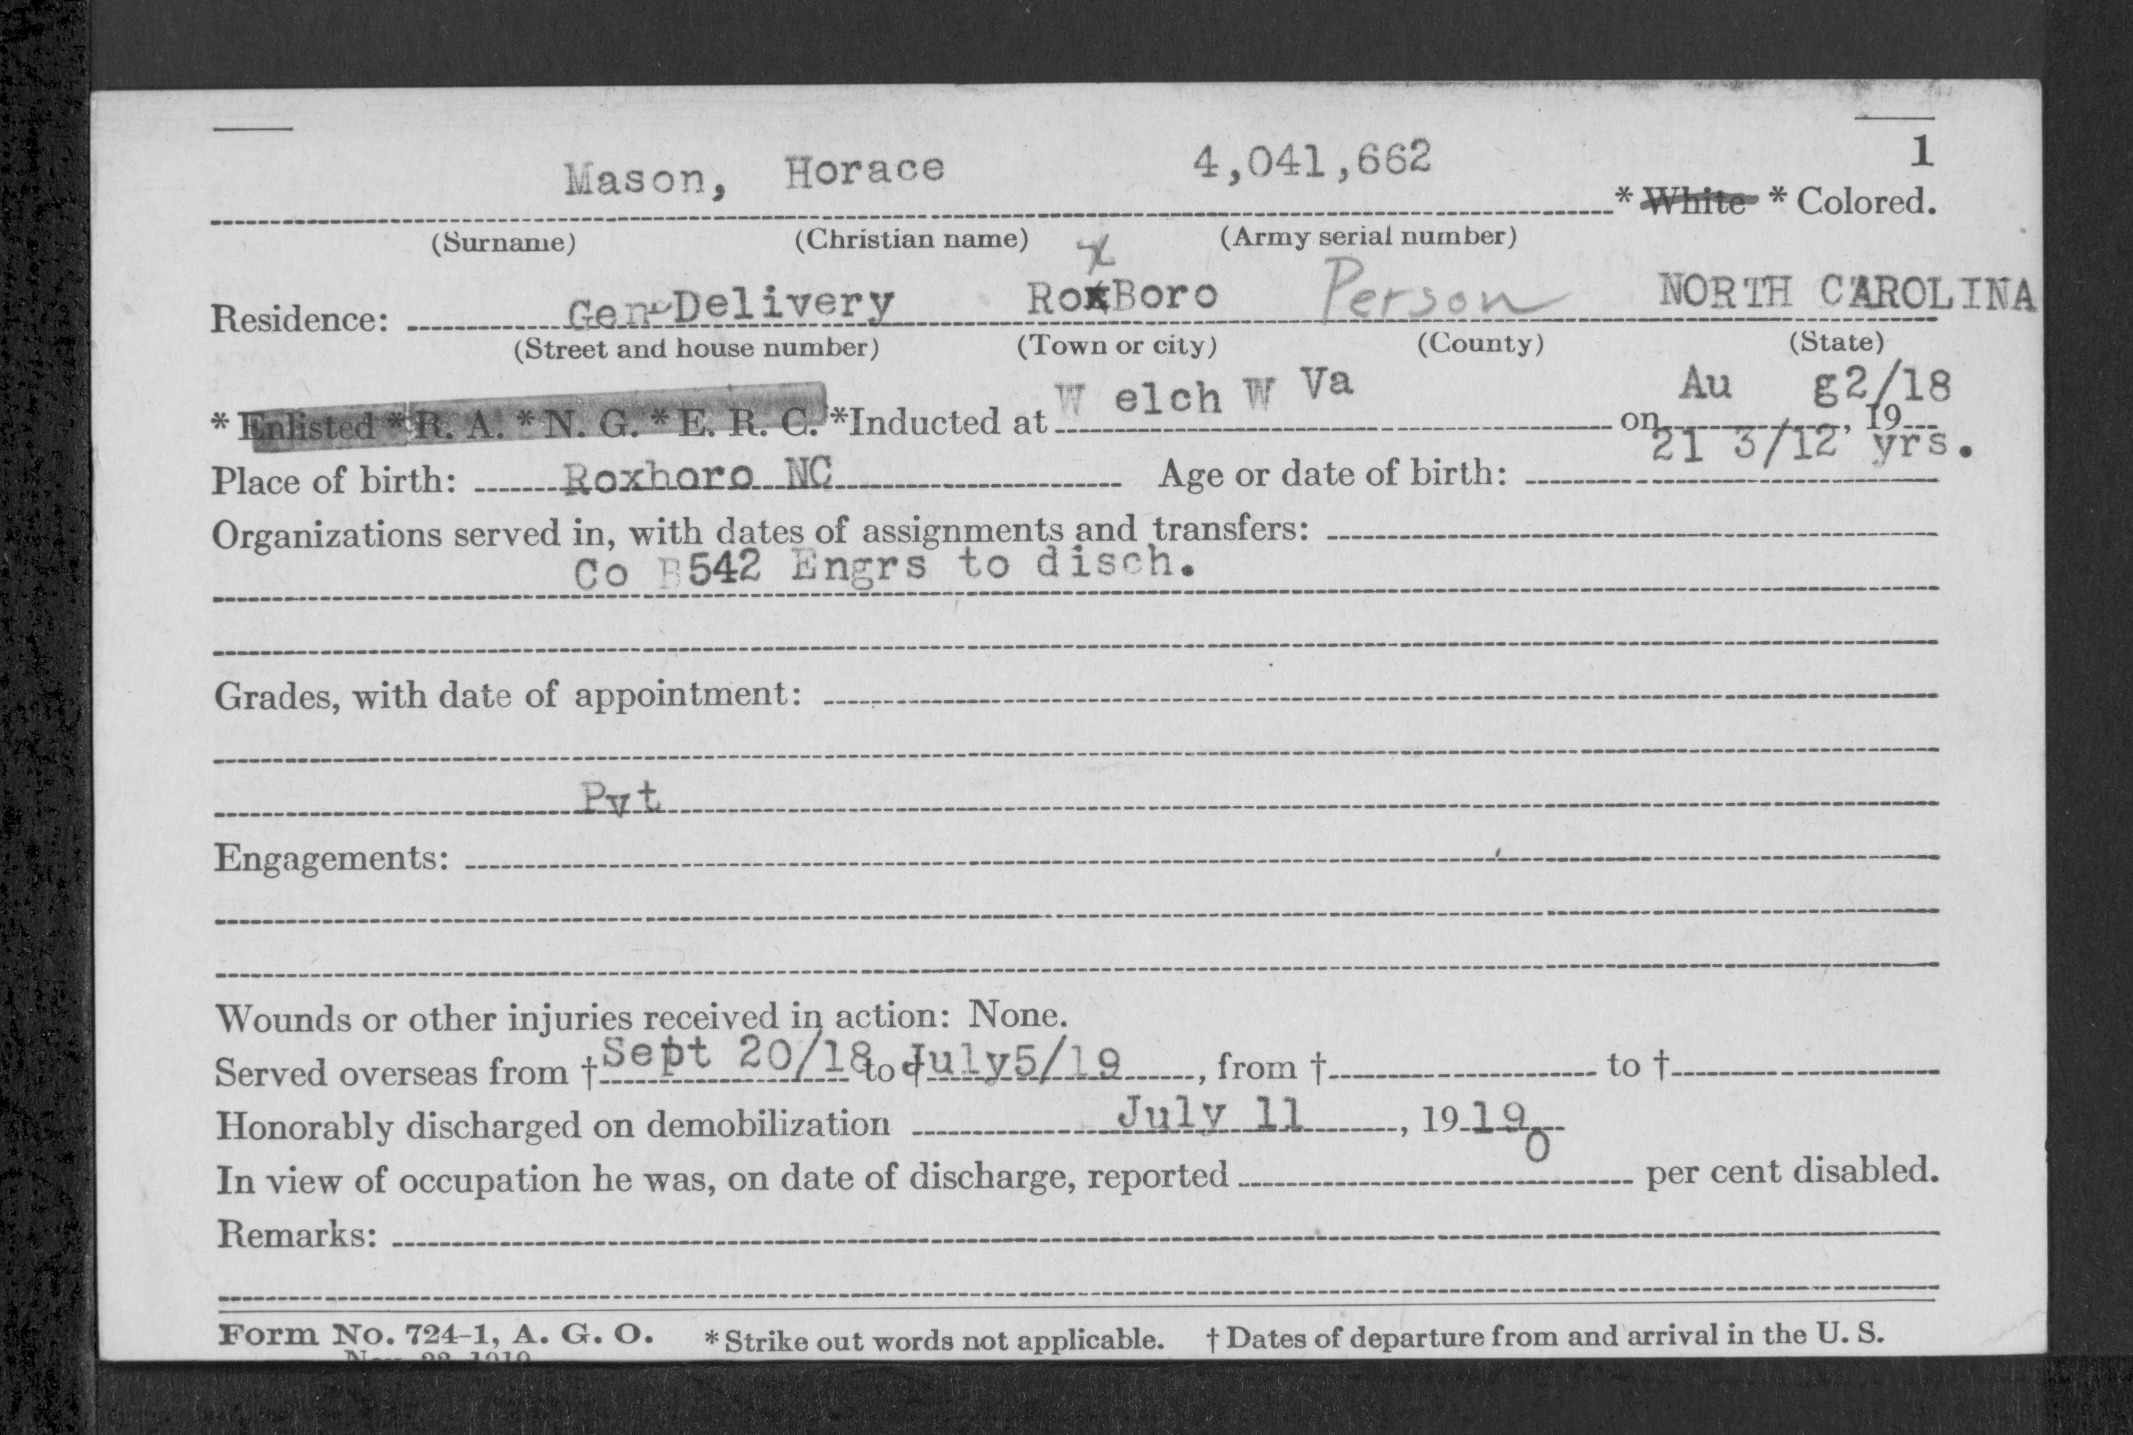 1
Mason, Horace 4,041,662 * White * Colored.
(Surname) (Christian name) (Army serial number)
x
Residence: Gen Delivery RoxBoro Person NORTH CAROLINA
(Street and house number) (Town or city) (County) (State)
* Enlisted * R. A. * N. G. * E. R. C. *Inducted at W elch W Va on Au g2/18, 19
Place of birth: Roxboro NC Age or date of birth: 21 3/12 yrs.
Organizations served in, with dates of assignments and transfers:
Co B542 Engrs to disch.
Grades, with date of appointment:
Pvt
Engagements:
Wounds or other injuries received in action: None.
Served overseas from † Sept 20/18 to † July5/19, from † to †
Honorably discharged on demobilization July 11, 1919
In view of occupation he was, on date of discharge, reported 0 per cent disabled.
Remarks:
Form No. 724-1, A. G. O. * Strike out words not applicable. † Dates of departure from and arrival in the U. S.